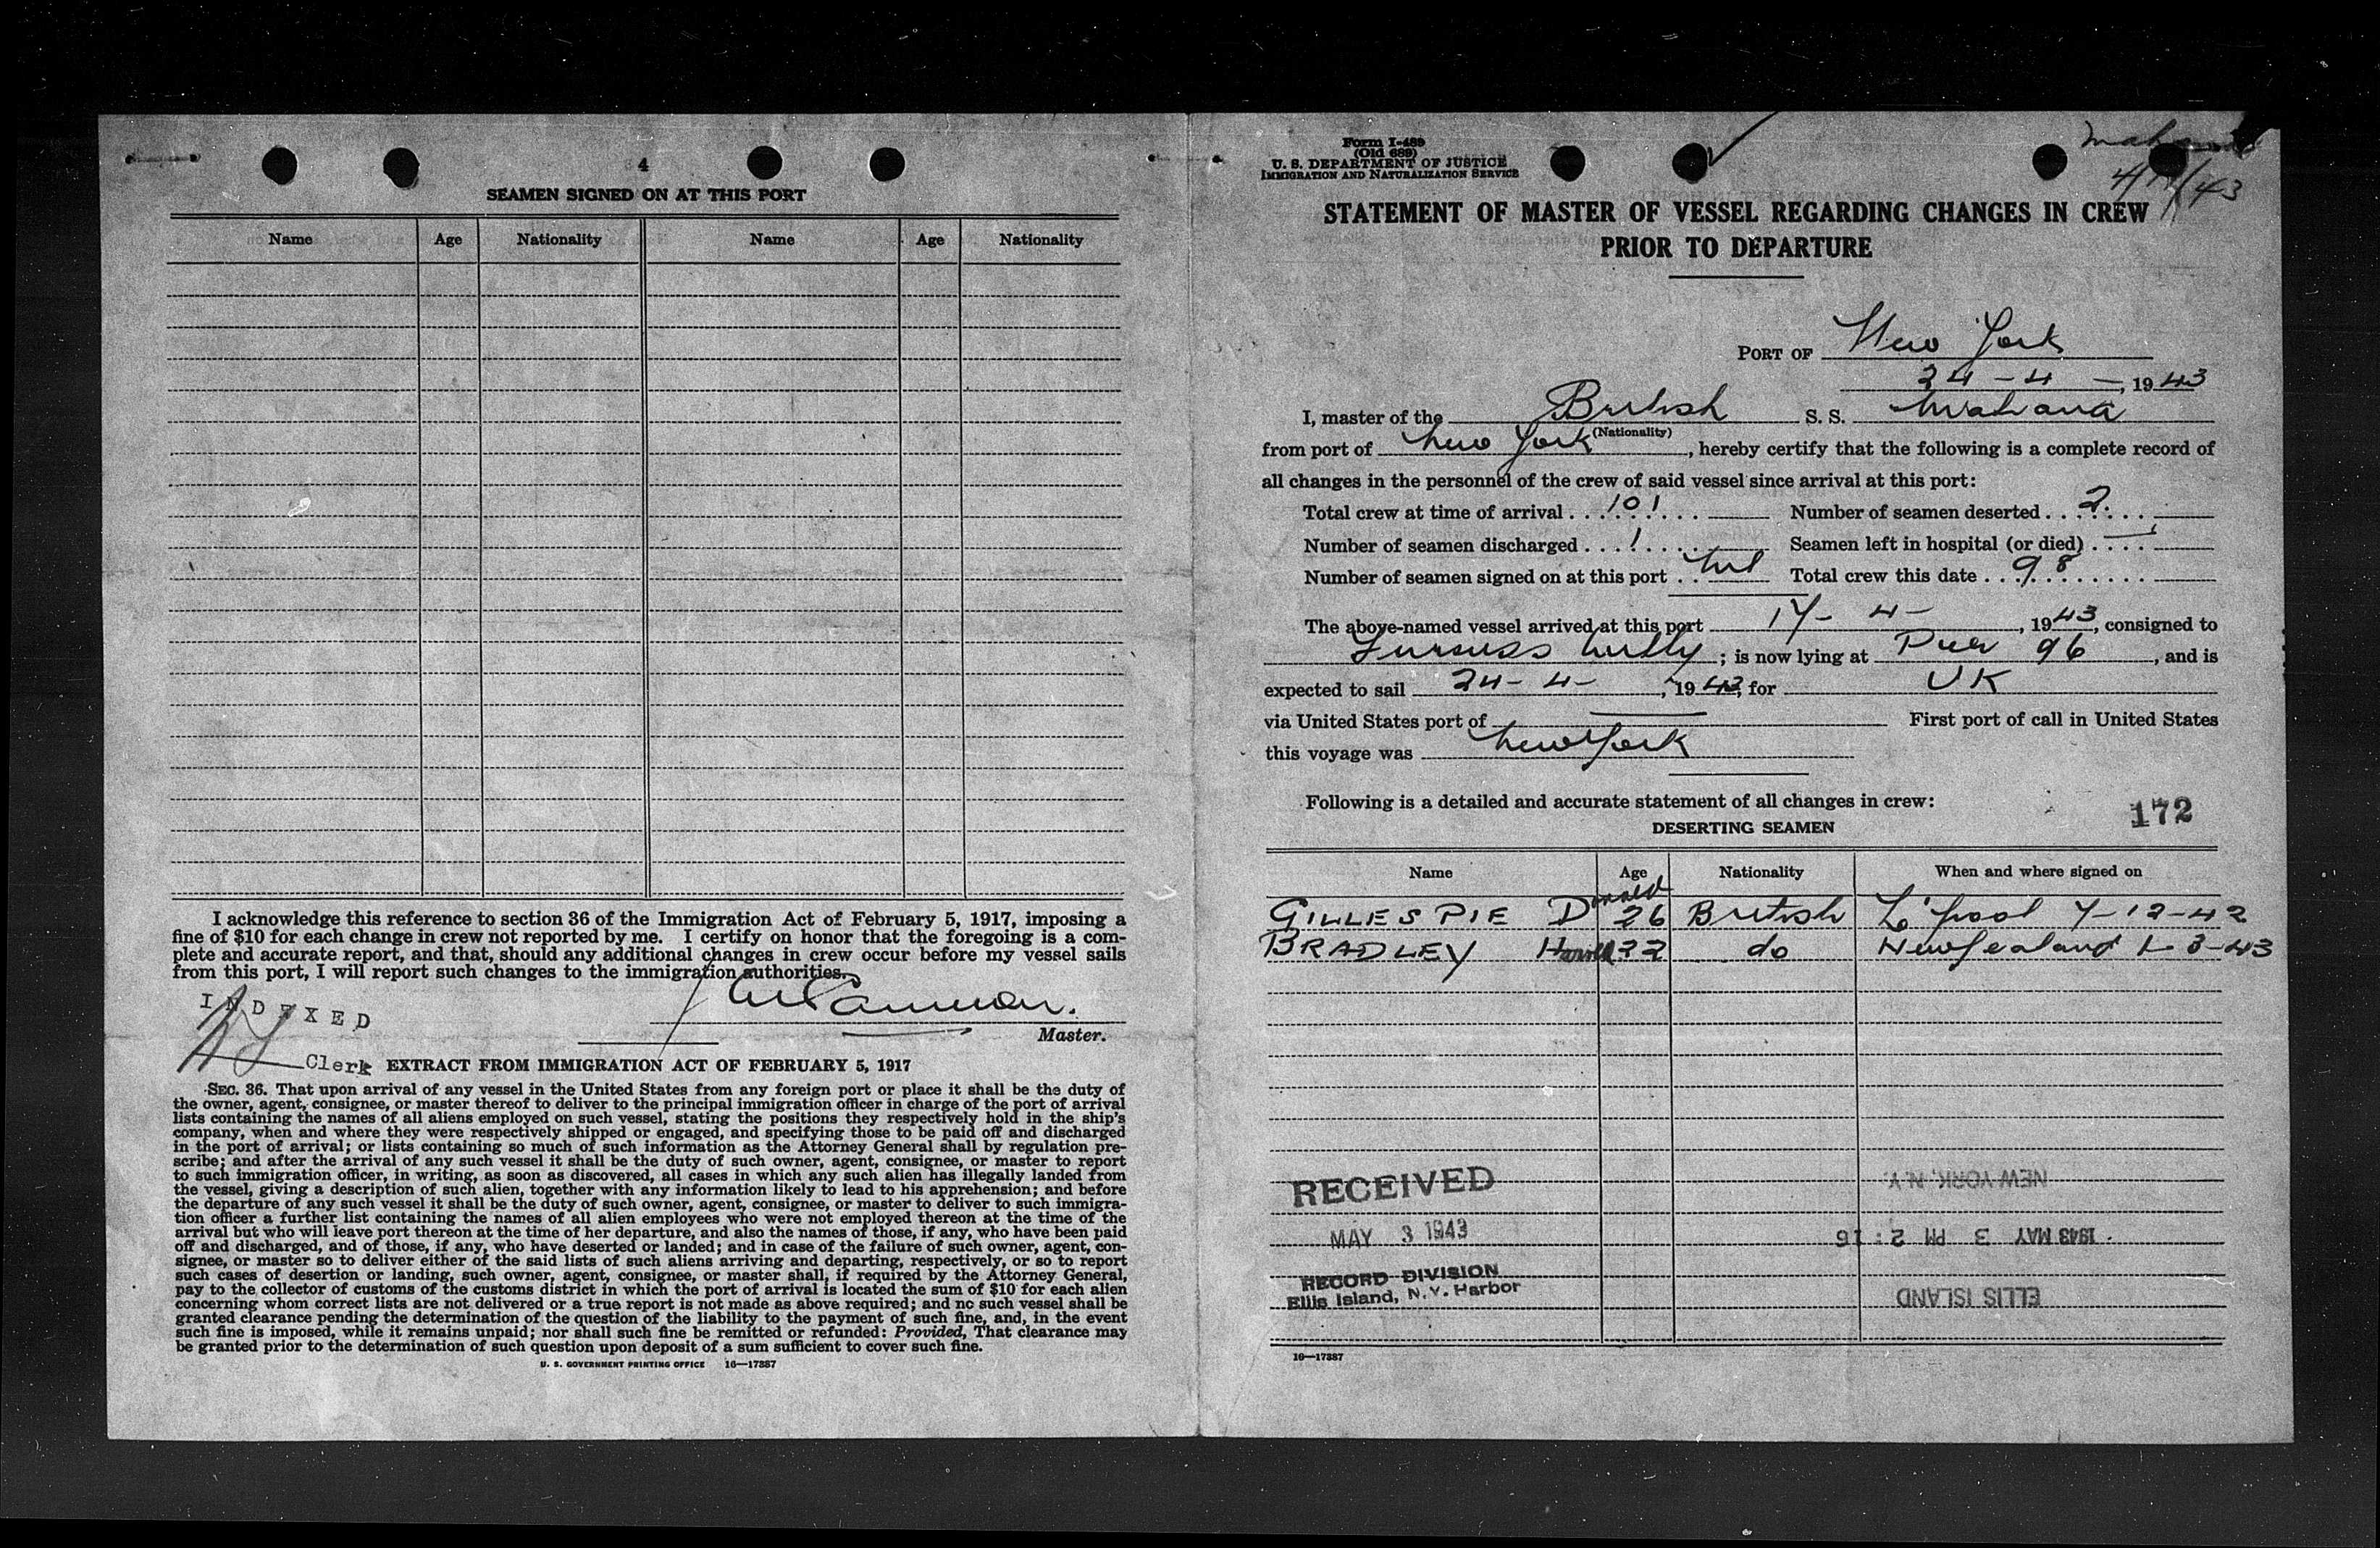 4
SEAMEN SIGNED ON AT THIS PORT
Name Age Nationality Name Age Nationality
I acknowledge this reference to section 36 of the Immigration Act of February 5, 1917, imposing a
fine of $10 for each change in crew not reported by me. I certify on honor that the foregoing is a com-
plete and accurate report, and that, should any additional changes in crew occur before my vessel sails
from this port, I will report such changes to the immigration authorities.
INDEXED
Master.
Clerk
EXTRACT FROM IMMIGRATION ACT OF FEBRUARY 5, 1917
SEC. 36. That upon arrival of any vessel in the United States from any foreign port or place it shall be the duty of
the owner, agent, consignee, or master thereof to deliver to the principal immigration officer in charge of the port of arrival
lists containing the names of all aliens employed on such vessel, stating the positions they respectively hold in the ship's
company, when and where they were respectively shipped or engaged, and specifying those to be paid off and discharged
in the port of arrival; or lists containing so much of such information as the Attorney General shall by regulation pre-
scribe; and after the arrival of any such vessel it shall be the duty of such owner, agent, consignee, or master to report
to such immigration officer, in writing, as soon as discovered, all cases in which any such alien has illegally landed from
the vessel, giving a description of such alien, together with any information likely to lead to his apprehension; and before
the departure of any such vessel it shall be the duty of such owner, agent, consignee, or master to deliver to such immigra-
tion officer a further list containing the names of all alien employees who were not employed thereon at the time of the
arrival but who will leave port thereon at the time of her departure, and also the names of those, if any, who have been paid
off and discharged, and of those, if any, who have deserted or landed; and in case of the failure of such owner, agent, con-
signee, or master so to deliver either of the said lists of such aliens arriving and departing, respectively, or so to report
such cases of desertion or landing, such owner, agent, consignee, or master shall, if required by the Attorney General,
pay to the collector of customs of the customs district in which the port of arrival is located the sum of $10 for each alien
concerning whom correct lists are not delivered or a true report is not made as above required; and no such vessel shall be
granted clearance pending the determination of the question of the liability to the payment of such fine, and, in the event
such fine is imposed, while it remains unpaid; nor shall such fine be remitted or refunded: Provided, That clearance may
be granted prior to the determination of such question upon deposit of a sum sufficient to cover such fine.
U. S. GOVERNMENT PRINTING OFFICE 16—17387
Form I-489
(Old 689)
U. S. DEPARTMENT OF JUSTICE
IMMIGRATION AND NATURALIZATION SERVICE
STATEMENT OF MASTER OF VESSEL REGARDING CHANGES IN CREW
PRIOR TO DEPARTURE
PORT OF New York
24-4-, 1943
I, master of the British S. S. Mahana
(Nationality)
from port of New York, hereby certify that the following is a complete record of
all changes in the personnel of the crew of said vessel since arrival at this port:
Total crew at time of arrival 101 Number of seamen deserted 2
Number of seamen discharged 1 Seamen left in hospital (or died) —
Number of seamen signed on at this port nil Total crew this date 98
The above-named vessel arrived at this port 17-4-, 1943, consigned to
Furness Withy; is now lying at Pier 96, and is
expected to sail 24-4-, 1943, for UK
via United States port of — First port of call in United States
this voyage was New York
Following is a detailed and accurate statement of all changes in crew:
172
DESERTING SEAMEN
Name Age Nationality When and where signed on
GILLESPIE Donald 26 British L'pool 7-12-42
BRADLEY Harold 22 do New Zealand 1-3-43
RECEIVED
MAY 3 1943
RECORD DIVISION
Ellis Island, N.Y. Harbor
ELLIS ISLAND
1943 MAY 3 PM 2:16
NEW YORK, N.Y.
16—17387